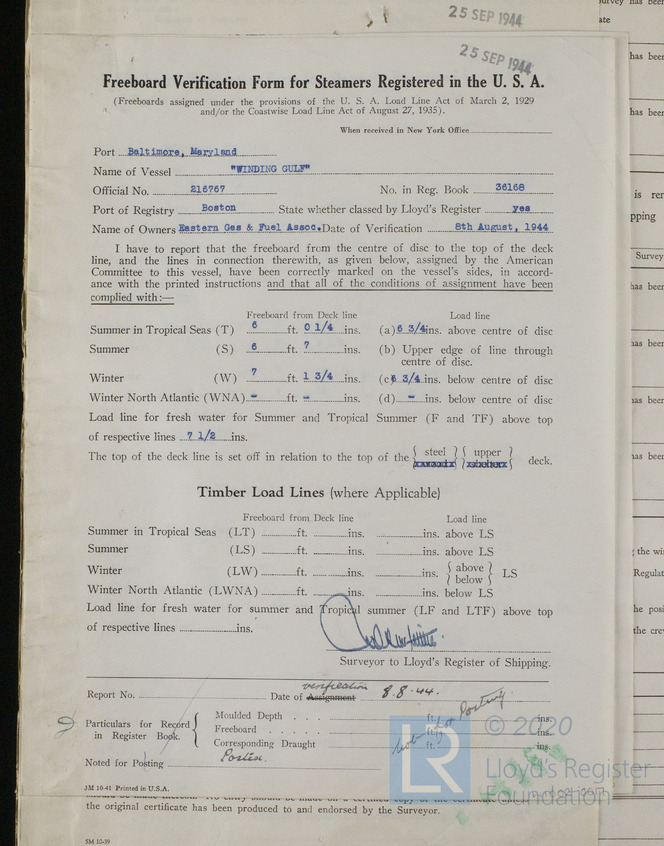 25 SEP 1944
25 SEP 1944
Freeboard Verification Form for Steamers Registered in the U. S. A.
(Freeboards assigned under the provisions of the U. S. A. Load Line Act of March 2, 1929
and/or the Coastwise Load Line Act of August 27, 1935).
When received in New York Office
Port Baltimore, Maryland
Name of Vessel "WINDING GULF"
Official No. 216767 No. in Reg. Book 36168
Port of Registry Boston State whether classed by Lloyd's Register yes
Name of Owners Eastern Gas & Fuel Assoc. Date of Verification 8th August, 1944
I have to report that the freeboard from the centre of disc to the top of the deck
line, and the lines in connection therewith, as given below, assigned by the American
Committee to this vessel, have been correctly marked on the vessel's sides, in accord-
ance with the printed instructions and that all of the conditions of assignment have been
complied with:—
Freeboard from Deck line Load line
Summer in Tropical Seas (T) 6 ft. 0 1/4 ins. (a) 6 3/4 ins. above centre of disc
Summer (S) 6 ft. 7 ins. (b) Upper edge of line through
centre of disc.
Winter (W) 7 ft. 1 3/4 ins. (c) 6 3/4 ins. below centre of disc
Winter North Atlantic (WNA) - ft. - ins. (d) - ins. below centre of disc
Load line for fresh water for Summer and Tropical Summer (F and TF) above top
of respective lines 7 1/2 ins.
The top of the deck line is set off in relation to the top of the { steel } { upper } deck.
Timber Load Lines (where Applicable)
Freeboard from Deck line Load line
Summer in Tropical Seas (LT) ft. ins. ins. above LS
Summer (LS) ft. ins. ins. above LS
Winter (LW) ft. ins. ins. { above below } LS
Winter North Atlantic (LWNA) ft. ins. ins. below LS
Load line for fresh water for summer and Tropical summer (LF and LTF) above top
of respective lines ins.
Surveyor to Lloyd's Register of Shipping.
verification
Report No. Date of Assignment 8.8.44.
Particulars for Record in Register Book. { Moulded Depth ft. ins.
Freeboard ft. ins.
Corresponding Draught ft. ins.
not for Posting
Noted for Posting Posted.
3M 10-41 Printed in U.S.A.
the original certificate has been produced to and endorsed by the Surveyor.
5M 10-39
LR
© 2020
Lloyd's Register
Foundation
ate
has been
has been
pping
Survey
has been
has been
has been
has been
the wi
Regulat